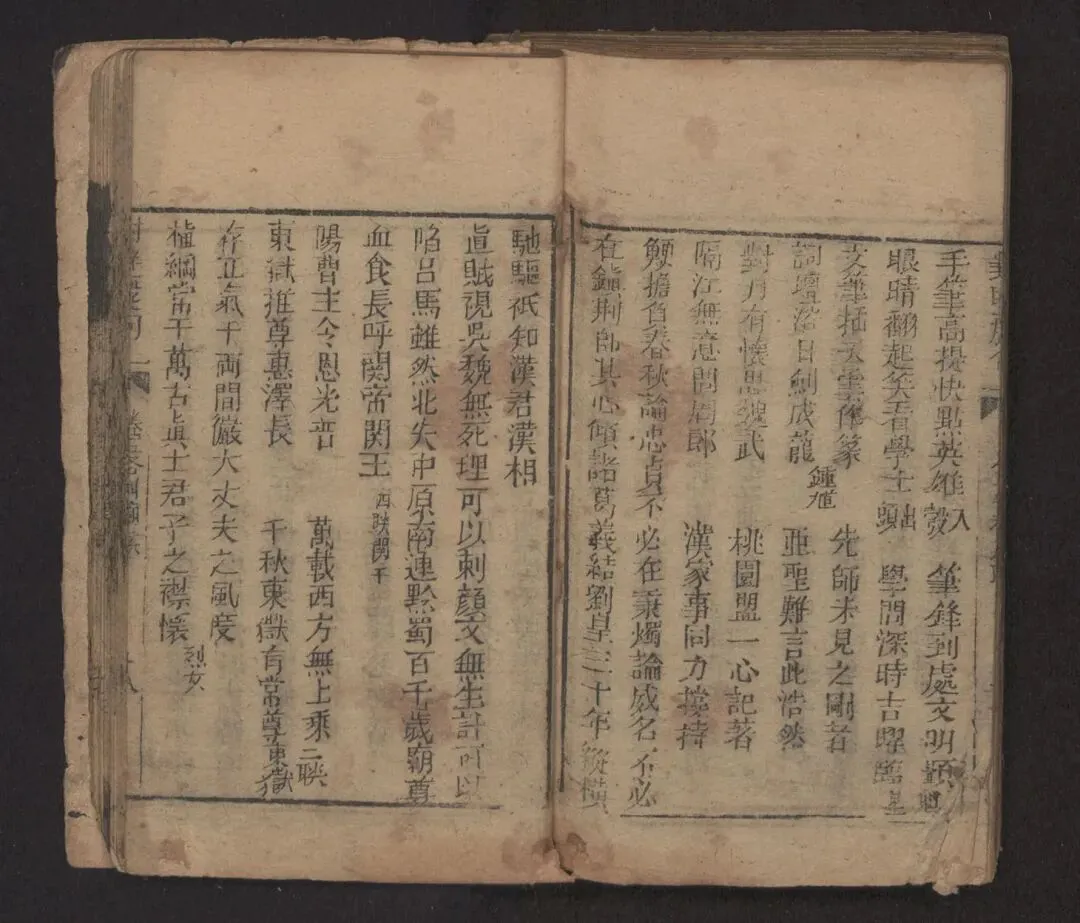 手筆高提快點英雄入彀 筆鋒到處文明顯 魁
眼睛翻起笑看學士出頭 學問深時吉曜臨 星
文筆插天雲作篆 先師未見之剛者
詞壇落日劍成龍 鍾馗 亞聖難言此浩然
對月有懷思魏武 桃園盟一心記著
隔江無意問周郎 漢家事同力撐持
擔負春秋論忠貞不必在秉燭論威名不必
在鎮荊師其心傾諸葛義結劉皇三十年縱橫
馳驅祇知漢君漢相
眞賊視吳魏無死理可以刺顏文無生計可以
陷呂馬雖然北失中原南連黔蜀百千歲廟尊
血食長呼關帝關王 西陝關
陽曹主令恩光普 萬載西方無上乘 二聯
東獄推尊惠澤長 千秋東獄有常尊 東獄
存正氣于兩間儼大丈夫之風度
植綱常于萬古眞士君子之襟懷 烈女